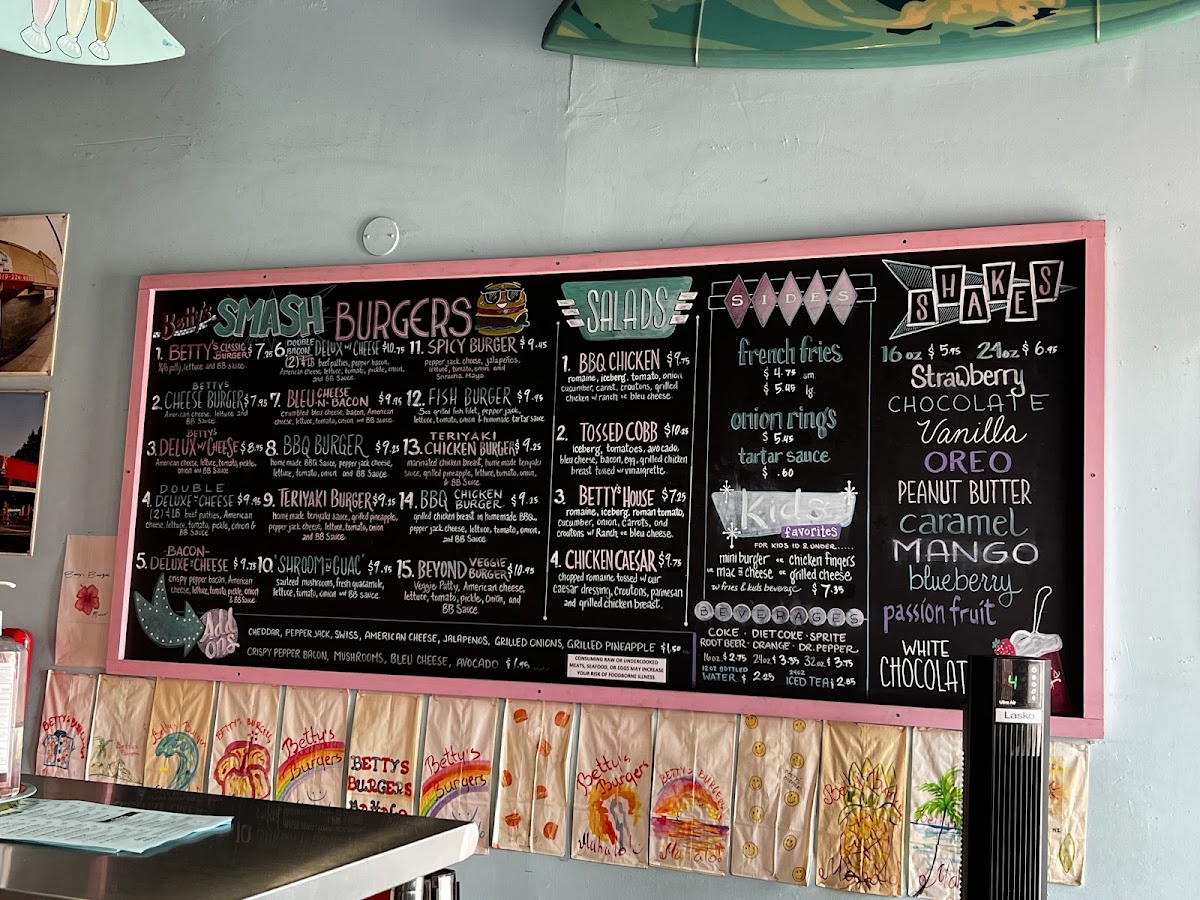 Betty's SMASH BURGERS
1. BETTY'S CLASSIC BURGER $7.25
1/4 lb patty, lettuce and BB sauce.
2. BETTY'S CHEESE BURGER $7.95
American cheese, lettuce and BB sauce
3. BETTY'S DELUX w/ CHEESE $8.95
American cheese, lettuce, tomato, pickle, onion and BB Sauce
4. DOUBLE DELUXE w/ CHEESE $9.95
(2) 1/4 LB beef patties, American cheese, lettuce, tomato, pickle, onion & BB Sauce
5. -BACON- DELUXE w/ CHEESE $9.75
crispy pepper bacon, American cheese, lettuce, tomato, pickle, onion & BB Sauce
6. DOUBLE BACON DELUX w/ CHEESE $10.75
(2) 1/4 LB beef patties, pepper bacon, American cheese, lettuce, tomato, pickle, onion, and BB Sauce.
7. BLEU CHEESE -N- BACON $9.95
crumbled bleu cheese, bacon, American lettuce, tomato, onion and BB sauce.
8. BBQ BURGER $9.25
home made BBQ Sauce, pepper jack cheese, lettuce, tomato, onion and BB Sauce
9. TERIYAKI BURGER $9.25
home made teriyaki sauce, grilled pineapple, pepper jack cheese, lettuce, tomato, onion and BB Sauce.
10. "SHROOM -N- GUAC" $9.95
sauteed mushrooms, fresh guacamole, lettuce, tomato, onion and BB sauce.
11. SPICY BURGER $9.45
pepper jack cheese, jalapeños, lettuce, tomato, onion and Sriracha Mayo
12. FISH BURGER $9.95
5oz grilled fish filet, pepper jack, lettuce, tomato, onion & homemade tartar sauce
13. TERIYAKI CHICKEN BURGER $9.25
marinated chicken breast, home made teriyaki sauce, grilled pineapple, lettuce, tomato, onion, & BB Sauce
14. BBQ CHICKEN BURGER $9.25
grilled chicken breast in homemade BBQ, pepper jack cheese, lettuce, tomato, onion, and BB Sauce
15. BEYOND VEGGIE BURGER $10.95
Veggie Patty, American cheese, lettuce, tomato, pickle, onion, and BB Sauce
Add ons
CHEDDAR, PEPPER JACK, SWISS, AMERICAN CHEESE, JALAPENOS, GRILLED ONIONS, GRILLED PINEAPPLE $1.50
CRISPY PEPPER BACON, MUSHROOMS, BLEU CHEESE, AVOCADO $1.95
CONSUMING RAW OR UNDERCOOKED
MEATS, SEAFOOD, OR EGGS MAY INCREASE
YOUR RISK OF FOODBORNE ILLNESS
SALADS
1. BBQ CHICKEN $9.75
romaine, iceberg, tomato, onion
cucumber, carrot, croutons, grilled
chicken w/ ranch or bleu cheese.
2. TOSSED COBB $10.25
iceberg, tomatoes, avocado,
bleu cheese, bacon, egg, grilled chicken
breast tossed w/ vinaigrette.
3. BETTY'S HOUSE $7.25
romaine, iceberg, roman tomato,
cucumber, onion, carrots, and
croutons w/ Ranch or bleu cheese.
4. CHICKEN CAESAR $9.75
chopped romaine tossed w/ our
caesar dressing, croutons, parmesan
and grilled chicken breast.
SIDES
french fries
$4.75 sm.
$5.45 lg.
onion rings
$5.45
tartar sauce
$.60
kids
favorites
FOR KIDS 10 & UNDER.....
mini burger or chicken fingers
or mac -n- cheese or grilled cheese
w/ fries & kids beverage $7.35
BEVERAGES
COKE · DIET COKE · SPRITE
ROOT BEER · ORANGE · DR. PEPPER
16oz $2.75 24oz $3.35 32oz $3.75
12 OZ BOTTLED WATER $2.25 24oz ICED TEA $2.85
SHAKES
16 oz $5.95 24oz $6.95
Strawberry
CHOCOLATE
Vanilla
OREO
PEANUT BUTTER
caramel
MANGO
blueberry
passion fruit
WHITE
CHOCOLAT
Lasko
4
BETTY'S
Betty's Burgers
BETTY'S BURGERS
Betty's
Burgers
BETTYS
BURGERS
MAHALO
Betty's
Burgers
Betty's
Burgers
Mahalo
BETTY'S BURGERS
Mahalo